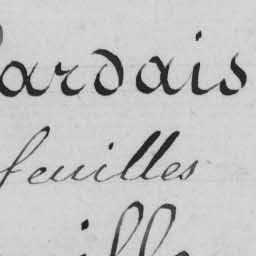 ardais
feuilles
ille